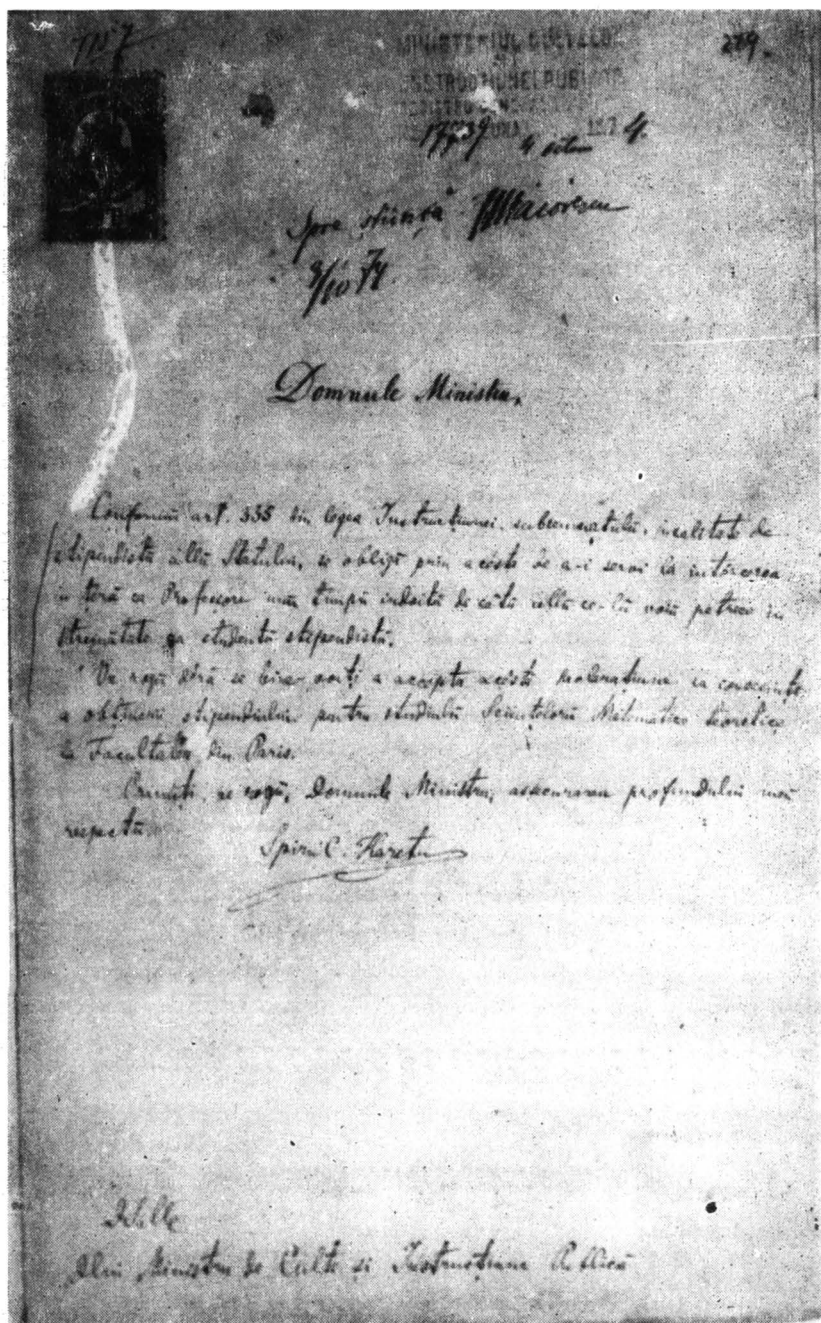 7157
279.
MINISTERIUL CULTELOR
17739 4 4.
Spre sciință TMaiorescu
9/10 74
Domnule Ministru,
Conformŭ art. 335 din legea Instrucțiunei, subsemnatulŭ, in calitate de
stipendistŭ allŭ Statului, me obligŭ prin acésta de a-i servi la intórcerea
in țéră ca Professore unŭ timpŭ indoitŭ de câtŭ cellŭ ce-lŭ voiŭ petrece in
streinătate ca studentŭ stipendistŭ.
Ve rogŭ déră se bine-voiți a accepta acéstă declarațiune ca consecință
a obținerii stipendiului pentru studiulŭ Sciințelorŭ Matematice teoretice
la Facultatea din Paris.
Primiți, ve rogŭ, Domnule Ministru, assecurarea profundului meŭ
respectŭ.
Spiru C. Haretu
Dlui Ministru de Culte și Instrucțiune Publică